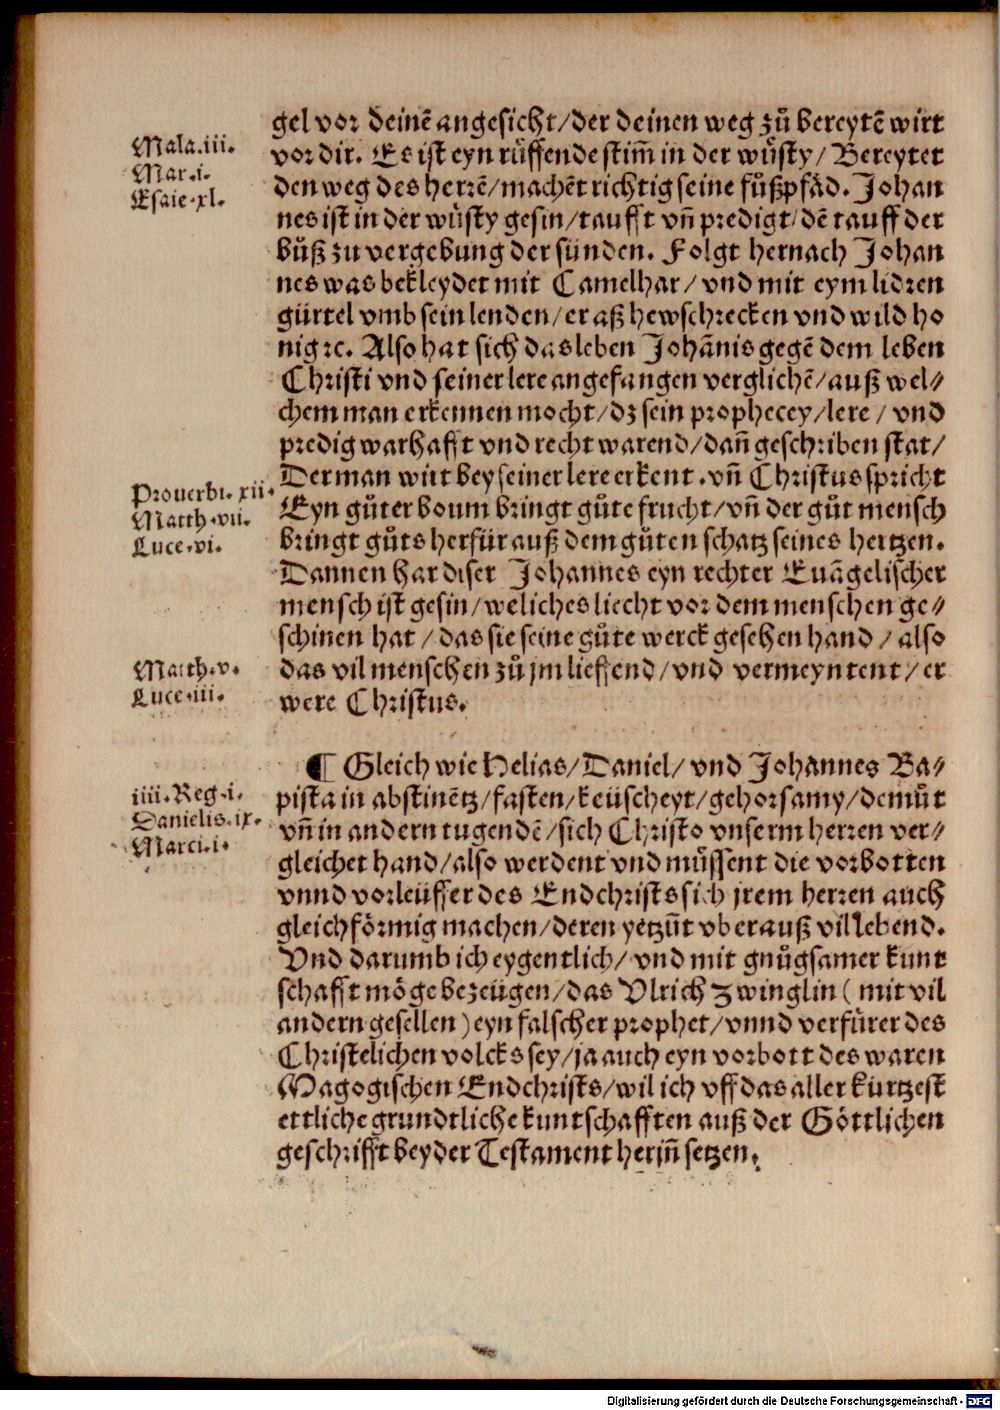 gel vor deinē angesicht/der deinen weg zů bereytē wirt
Mala.iii.
vor dir. Es ist eyn růffende stim̄ in der wůsty/ Bereytet
Mar.i.
den weg des herrē/machēt richtig seine fůßpfäd. Johan
Esaie.xl.
nes ist in der wůsty gesin/taufft vn̄ predigt/dē tauff der
bůß zu vergebung der sünden. Folgt hernach Johan
nes was bekleydet mit Camelhar/ vnd mit eym lidren
gürtel vmb sein lenden/er aß hewschrecken vnd wild ho
nig ꝛc. Also hat sich das leben Johānis gegē dem leben
Christi vnd seiner lere angefangen verglichē/auß wel⸗
chem man erkennen mocht/dz sein prophecey/lere/ vnd
predig warhafft vnd recht warend/dan̄ geschriben stat/
Der man wirt bey seiner lere erkent. vn̄ Christus spricht
Prouerbi. xii.
Eyn gůter boum bringt gůte frucht/vn̄ der gůt mensch
Matth.vii.
bringt gůts herfür auß dem gůten schatz seines hertzen.
Luce.vi.
Dannen har diser Johannes eyn rechter Euāgelischer
mensch ist gesin/weliches liecht vor dem menschen ge⸗
schinen hat/das sie seine gůte werck gesehen hand/also
das vil menschen zů jm lieffend/vnd vermeyntent/er
Matth.v.
Luce.iii.
were Christus.
¶ Gleich wie Helias/Daniel/ vnd Johannes Ba⸗
pista in abstinētz/fasten/keüscheyt/gehorsamy/demůt
iiii.Reg.i.
vn̄ in andern tugendē/sich Christo vnserm herren ver⸗
Danielis.ix.
gleichet hand/also werdent vnd můssent die vorbotten
Marci.i.
vnnd vorleüffer des Endchrists sich jrem herren auch
gleichförmig machen/deren yetzūt vber auß vil lebend.
Vnd darumb ich eygentlich/ vnd mit gnůgsamer kunt
schafft möge bezeügen/das Vlrich Zwinglin ( mit vil
andern gesellen ) eyn falscher prophet/vnnd verfürer des
Christelichen volcks sey/ja auch eyn vorbott des waren
Magogischen Endchrists/wil ich vff das aller kürtzest
ettliche grundtliche kuntschafften auß der Göttlichen
geschrifft beyder Testament herjn̄ setzen.
Digitalisierung gefördert durch die Deutsche Forschungsgemeinschaft - DFG